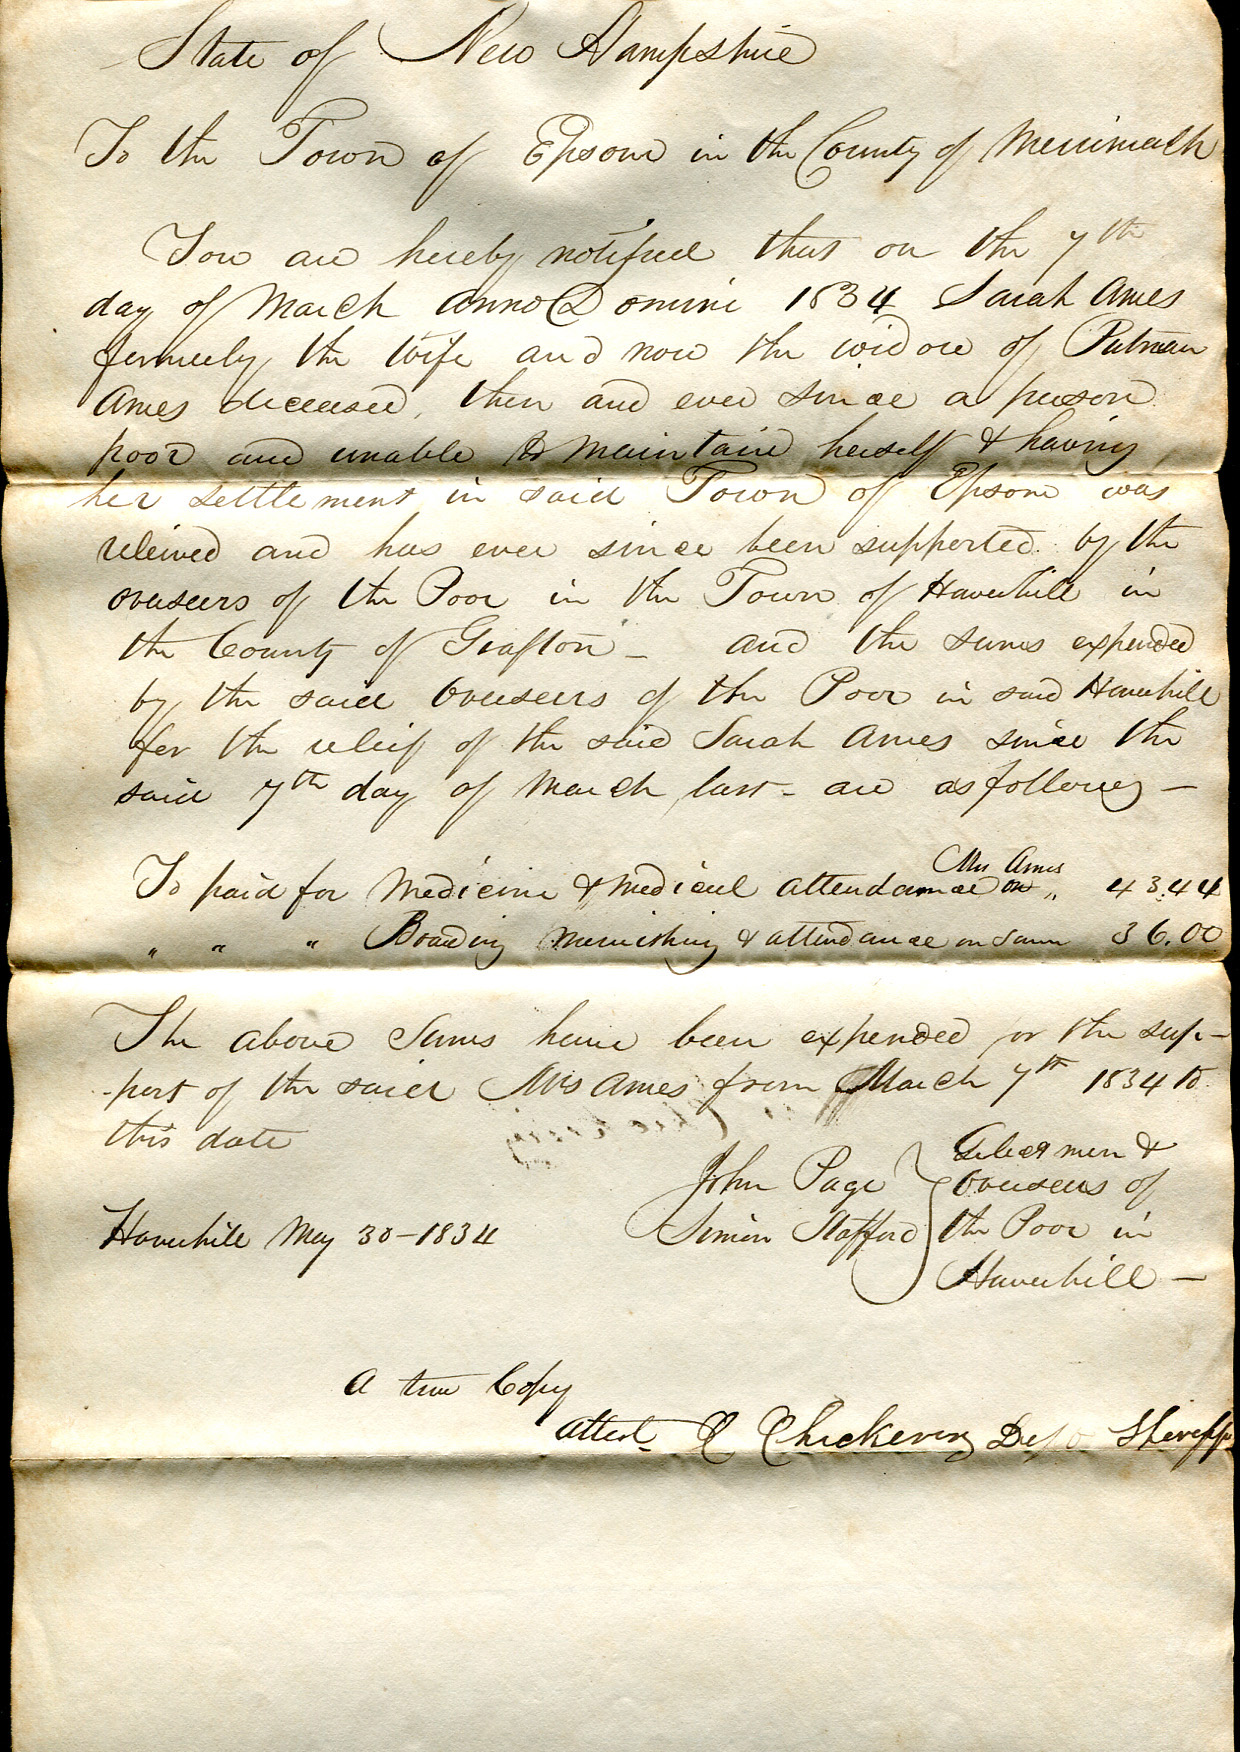 State of New Hampshire
To the Town of Epsom in the County of Merrimack
You are hereby notified that on the 7th
day of March Anno Domini 1834 Sarah Ames
formerly the Wife and now the widow of Putnam
Ames deceased, then and ever since a person
poor and unable to maintain herself & having
her settlement in said Town of Epsom was
releived and has ever since been supported by the
overseers of the Poor in the Town of Haverhill in
the County of Grafton - and the sums expended
by the said Overseers of the Poor in said Haverhill
for the releif of the said Sarah Ames since the
said 7th day of March last - are as follows -
Mrs Ames
To paid for Medicine & medical attendance on „ 43.44
„ „ „ Boarding & attendance on same 36.00
The above Sums have been expended for the sup-
-port of the said Mrs Ames from March 7th 1834 to
this date
John Page
Simon Stafford
Selectmen &
Overseers of
the Poor in
Haverhill -
Haverhill May 30 - 1834
A true Copy
Attest - Chickering Depo Sheriff